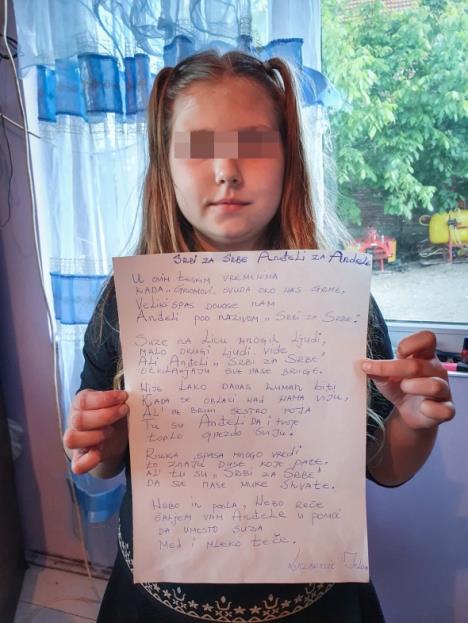 SRBI ZA SRBE ANĐELI ZA ANĐELE
U OVIM TEŠKIM VREMENIMA
KADA „GROMOVI„ SVUDA OKO NAS GRME,
VELIKI SPAS DONOSE NAM
ANĐELI POD NAZIVOM „SRBI ZA SRBE.”
SUZE NA LICU MNOGIH LJUDI,
MALO DRUGI LJUDI VIDE,
ALI ANĐELI „SRBI ZA SRBE”
OTKLANJAJU SVE NAŠE BRIGE.
NIJE LAKO DANAS HUMAN BITI
KADA SE OBLACI NAD NAMA VIJU,
AL' NE BRINI SESTRO MOJA
TU SU ANĐELI DA I TVOJE
TOPLO GNEZDO SVIJU.
RUKA SPASA MNOGO VREDI
TO ZNAJU DUŠE KOJE PATE.
AL' TU SU „SRBI ZA SRBE”
DA SVE NAŠE MUKE SHVATE.
NEBO IH POSLA, NEBO REČE
ŠALJEM VAM ANĐELE U POMOĆ
DA UMESTO SUZA
MED I MLEKO TEČE.